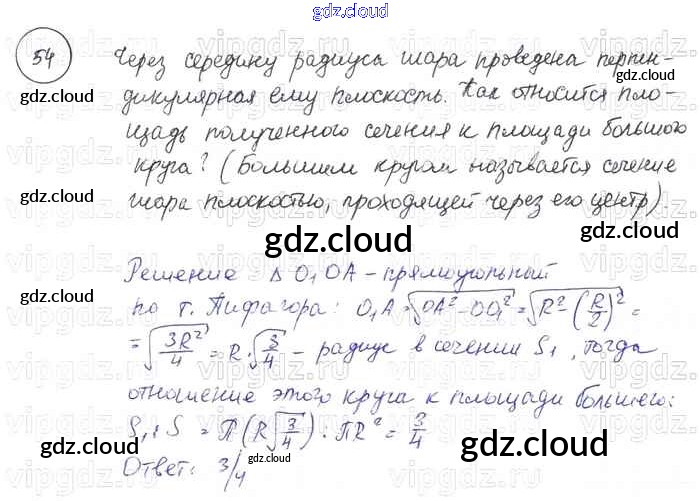 gdz.cloud
54 Через середину радиуса шара проведена перпен-
дикулярная ему плоскость. Как относится пло-
щадь полученного сечения к площади большого
круга? (Большим кругом называется сечение
шара плоскостью, проходящей через его центр).
gdz.cloud
Решение Δ O₁OA - прямоугольный
по т. Пифагора: O₁A = √(OA² - OO₁²) = √(R² - (R/2)²) =
= √(3R²/4) = R · √(3/4) - радиус в сечении S₁, тогда
отношение этого круга к площади большего:
S₁ : S = π (R√(3/4)) : πR² = 3/4
Ответ: 3/4